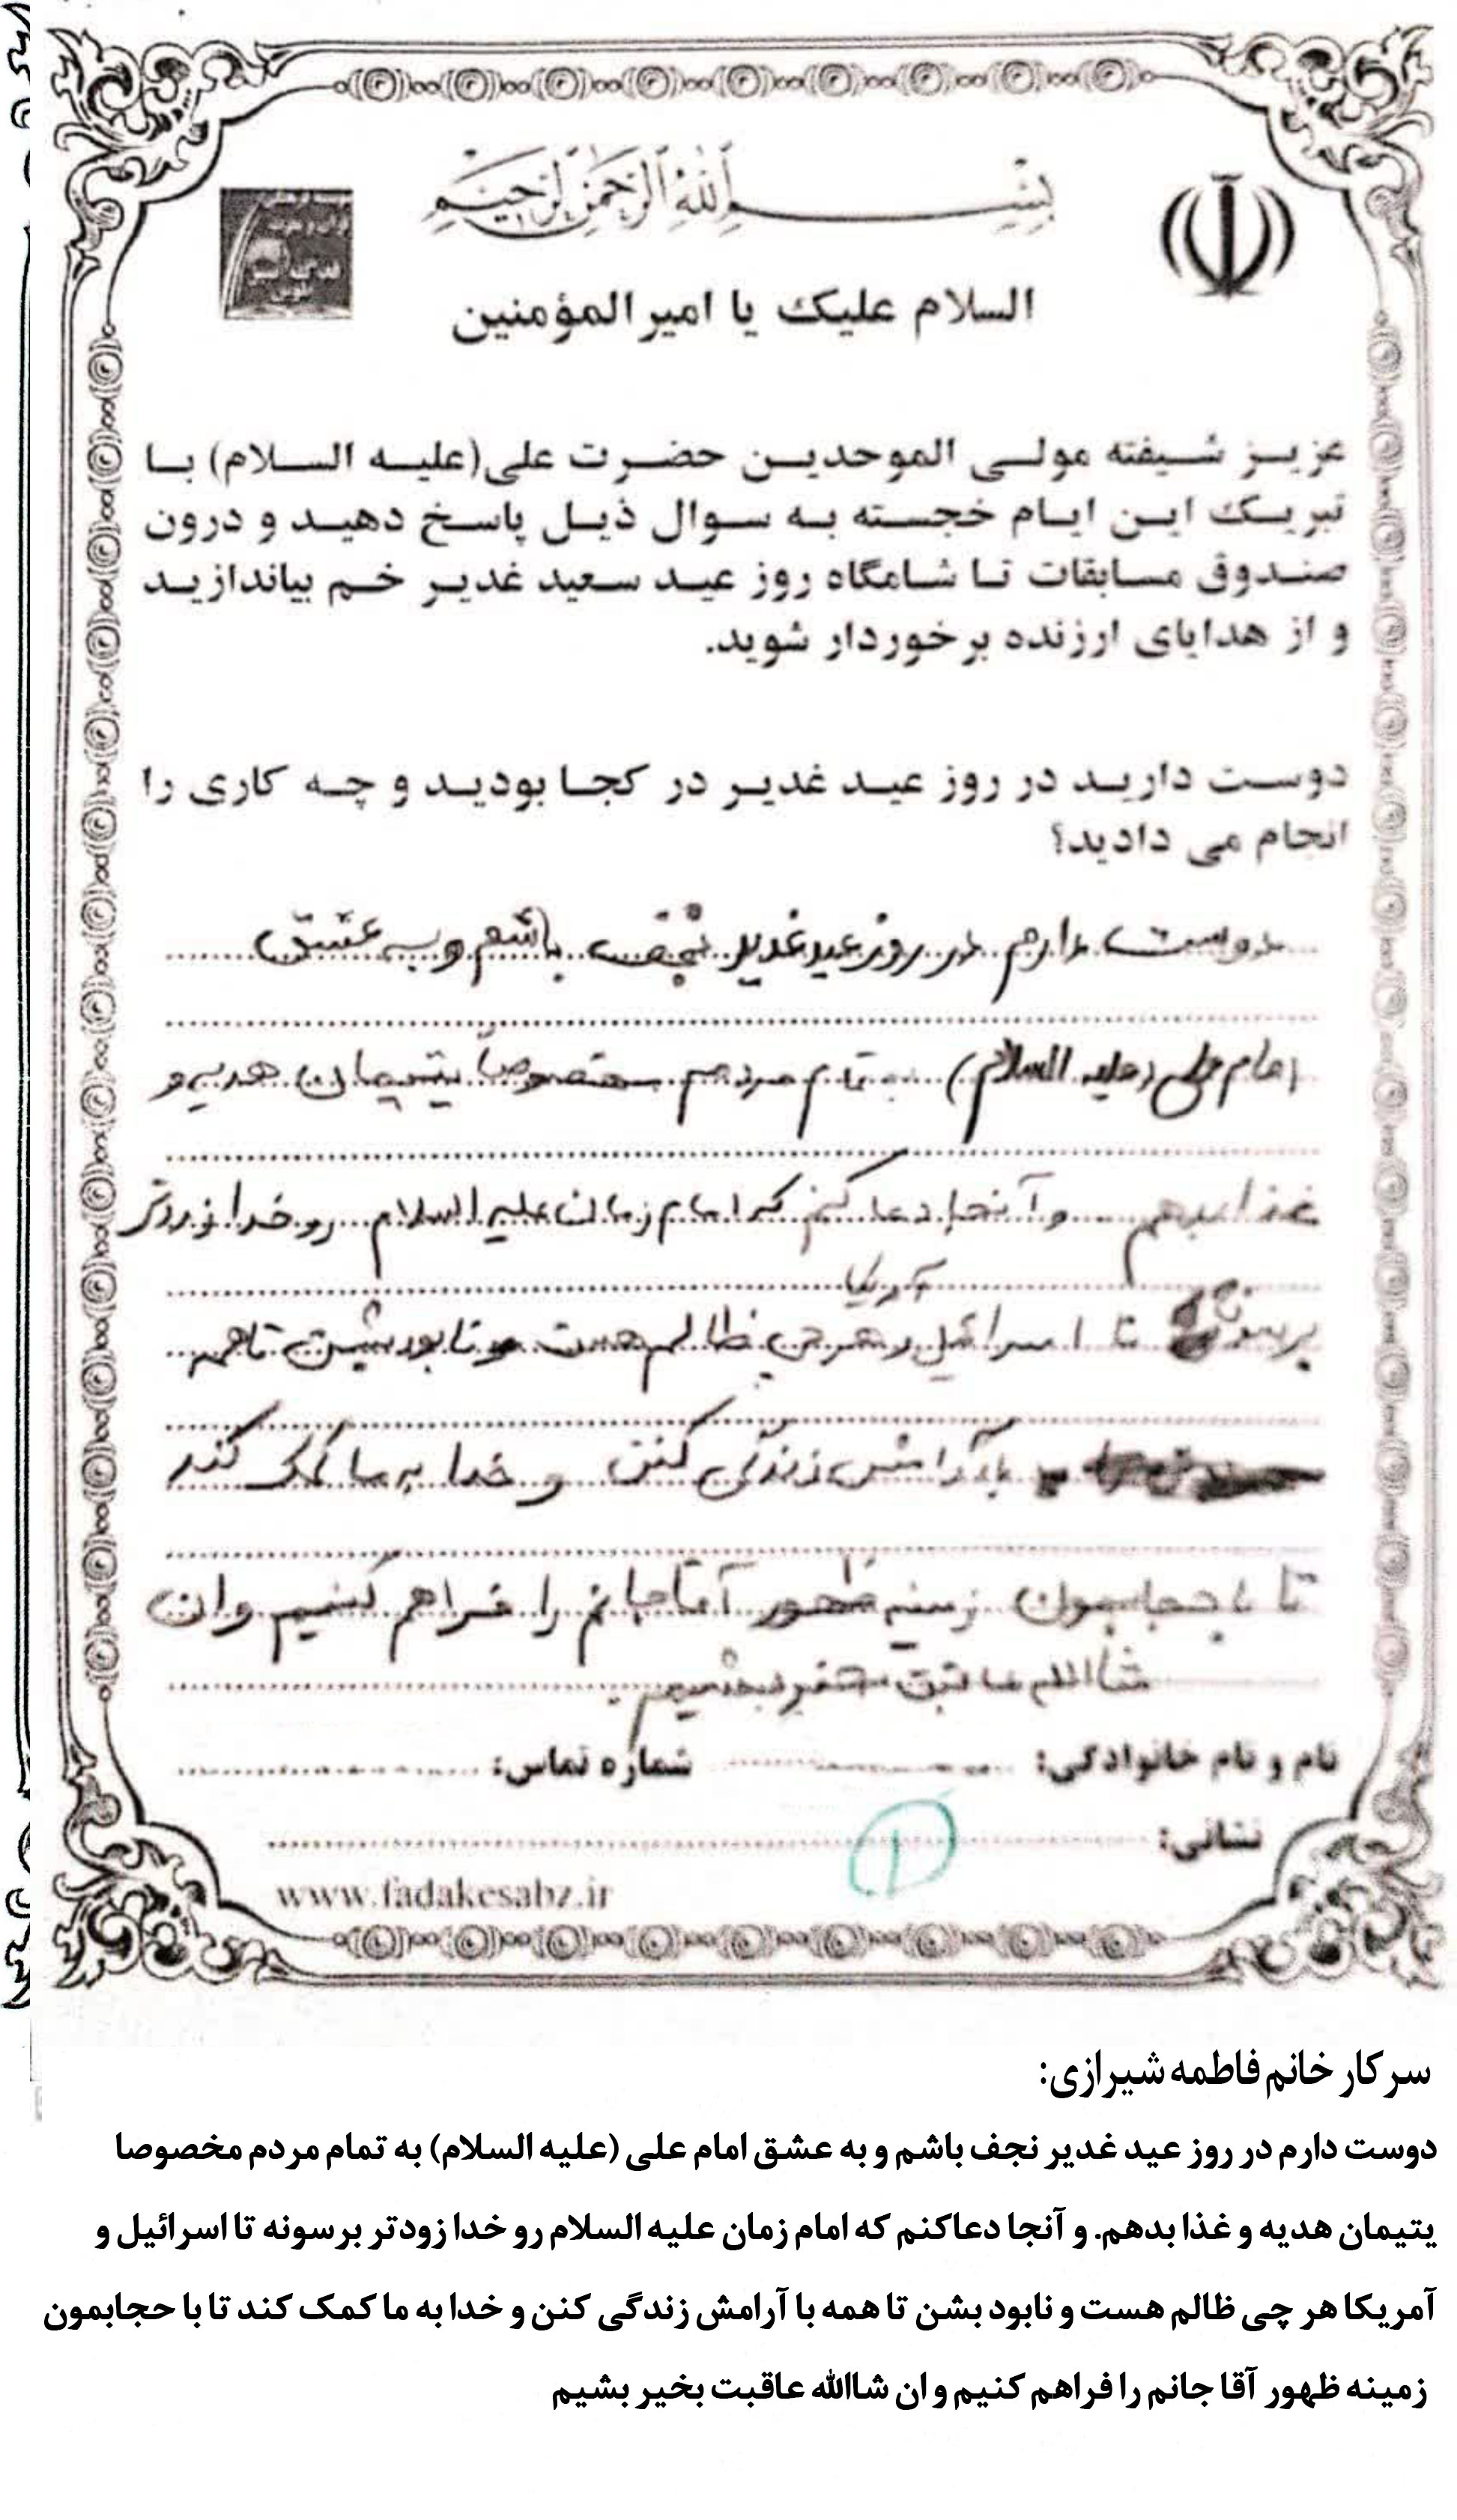 بسم الله الرحمن الرحیم
السلام علیک یا امیر المؤمنین
عزیز شیفته مولی الموحدین حضرت علی(علیه السلام) با
تبریک این ایام خجسته به سوال ذیل پاسخ دهید و درون
صندوق مسابقات تا شامگاه روز عید سعید غدیر خم بیاندازید
و از هدایای ارزنده برخوردار شوید.
دوست دارید در روز عید غدیر در کجا بودید و چه کاری را
انجام می دادید؟
دوست دارم در روز عید غدیر نجف باشم و به عشق
امام علی (علیه السلام) به تمام مردم مخصوصاً یتیمان هدیه و
غذا بدهم و آنجا دعا کنم که امام زمان علیه السلام رو خدا زودتر
برسونه تا اسرائیل و هر چی ظالم هست و نابود بشن تا همه
آمریکا
با آرامش زندگی کنن و خدا به ما کمک کند
تا با حجابمون زمینه ظهور آقا جانم را فراهم کنیم و ان
شاالله عاقبت بخیر بشیم.
نام و نام خانوادگی: شماره تماس:
نشانی:
۱
www.fadakesabz.ir
سرکار خانم فاطمه شیرازی:
دوست دارم در روز عید غدیر نجف باشم و به عشق امام علی (علیه السلام) به تمام مردم مخصوصا
یتیمان هدیه و غذا بدهم. و آنجا دعاکنم که امام زمان علیه السلام رو خدا زودتر برسونه تا اسرائیل و
آمریکا هر چی ظالم هست و نابود بشن تا همه با آرامش زندگی کنن و خدا به ما کمک کند تا با حجابمون
زمینه ظهور آقا جانم را فراهم کنیم و ان شاالله عاقبت بخیر بشیم